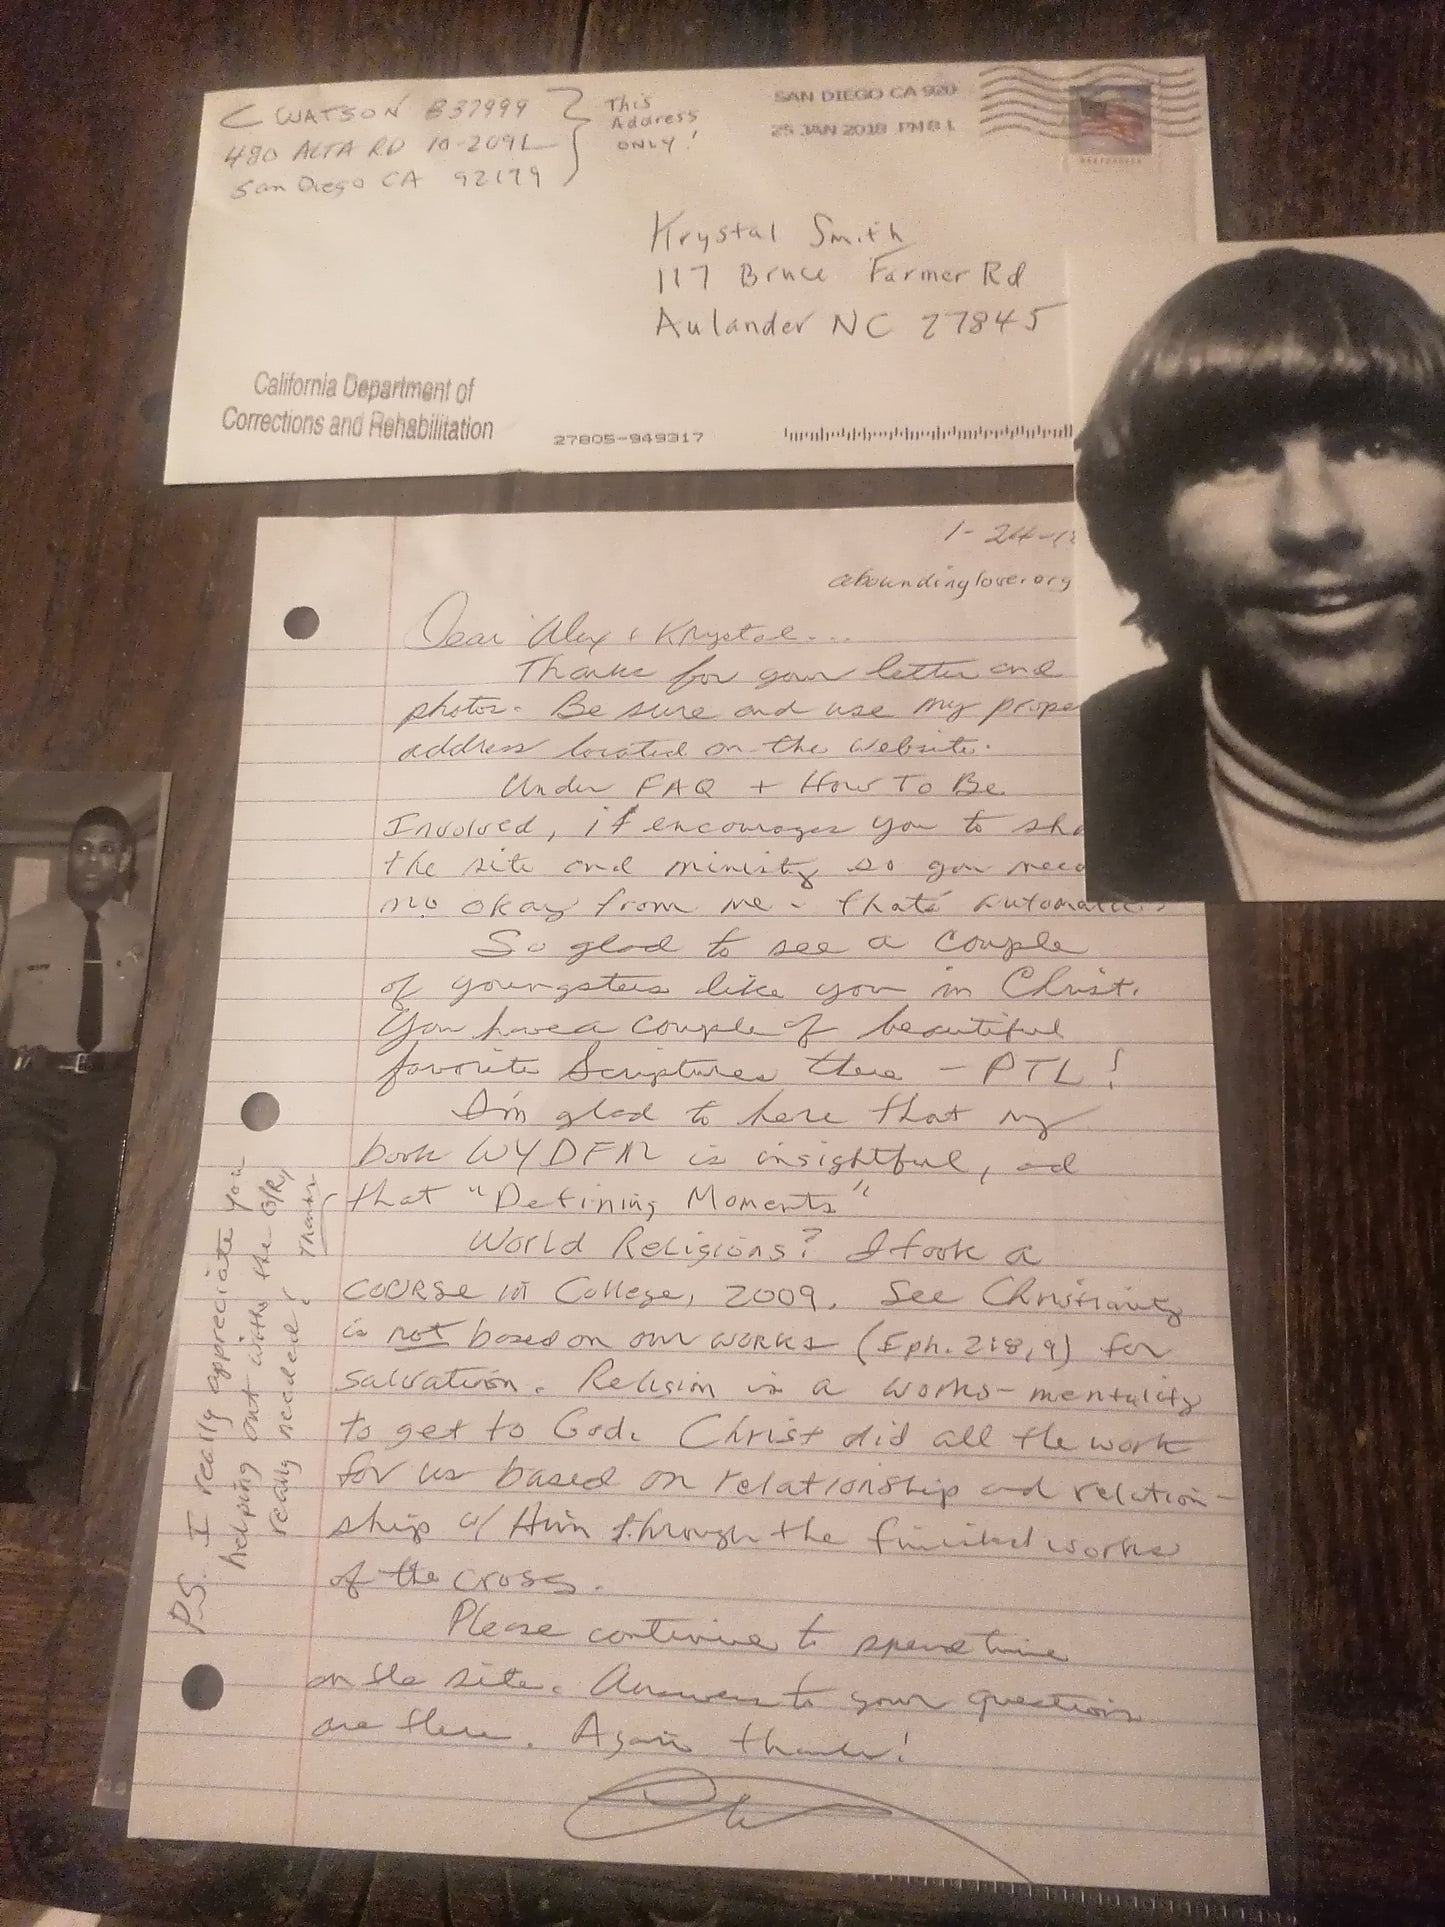 C WATSON B37999
480 ALTA RD 1A-209L
San Diego CA 92179
This
Address
ONLY!
SAN DIEGO CA 920
25 JAN 2018 PM 8 L
Krystal Smith
117 Bruce Farmer Rd
Aulander NC 27845
California Department of
Corrections and Rehabilitation
27805-949317
1-24-18
aboundinglove.org
Dear Alex & Krystal...
Thanks for your letter and
photos. Be sure and use my proper
address located on the website.
Under FAQ + How To Be
Involved, it encourages you to sha
the site and ministry so you need
no okay from me - that's automatic.
So glad to see a couple
of youngsters like you in Christ.
You have a couple of beautiful
favorite Scriptures there - PTL!
I'm glad to here that my
book WYDFM is insightful, ad
that "Defining Moments"
World Religions? I took a
course in College, 2009. See Christianity
is not based on our works (Eph. 2:8,9) for
salvation. Religion is a works-mentality
to get to God. Christ did all the work
for us based on relationship and relation-
ship w/ Him through the finished works
of the cross.
Please continue to spend time
on the site. Answers to your questions
are there. Again thanks!
P.S. I really appreciate you
helping out with the
really needed! Thanks